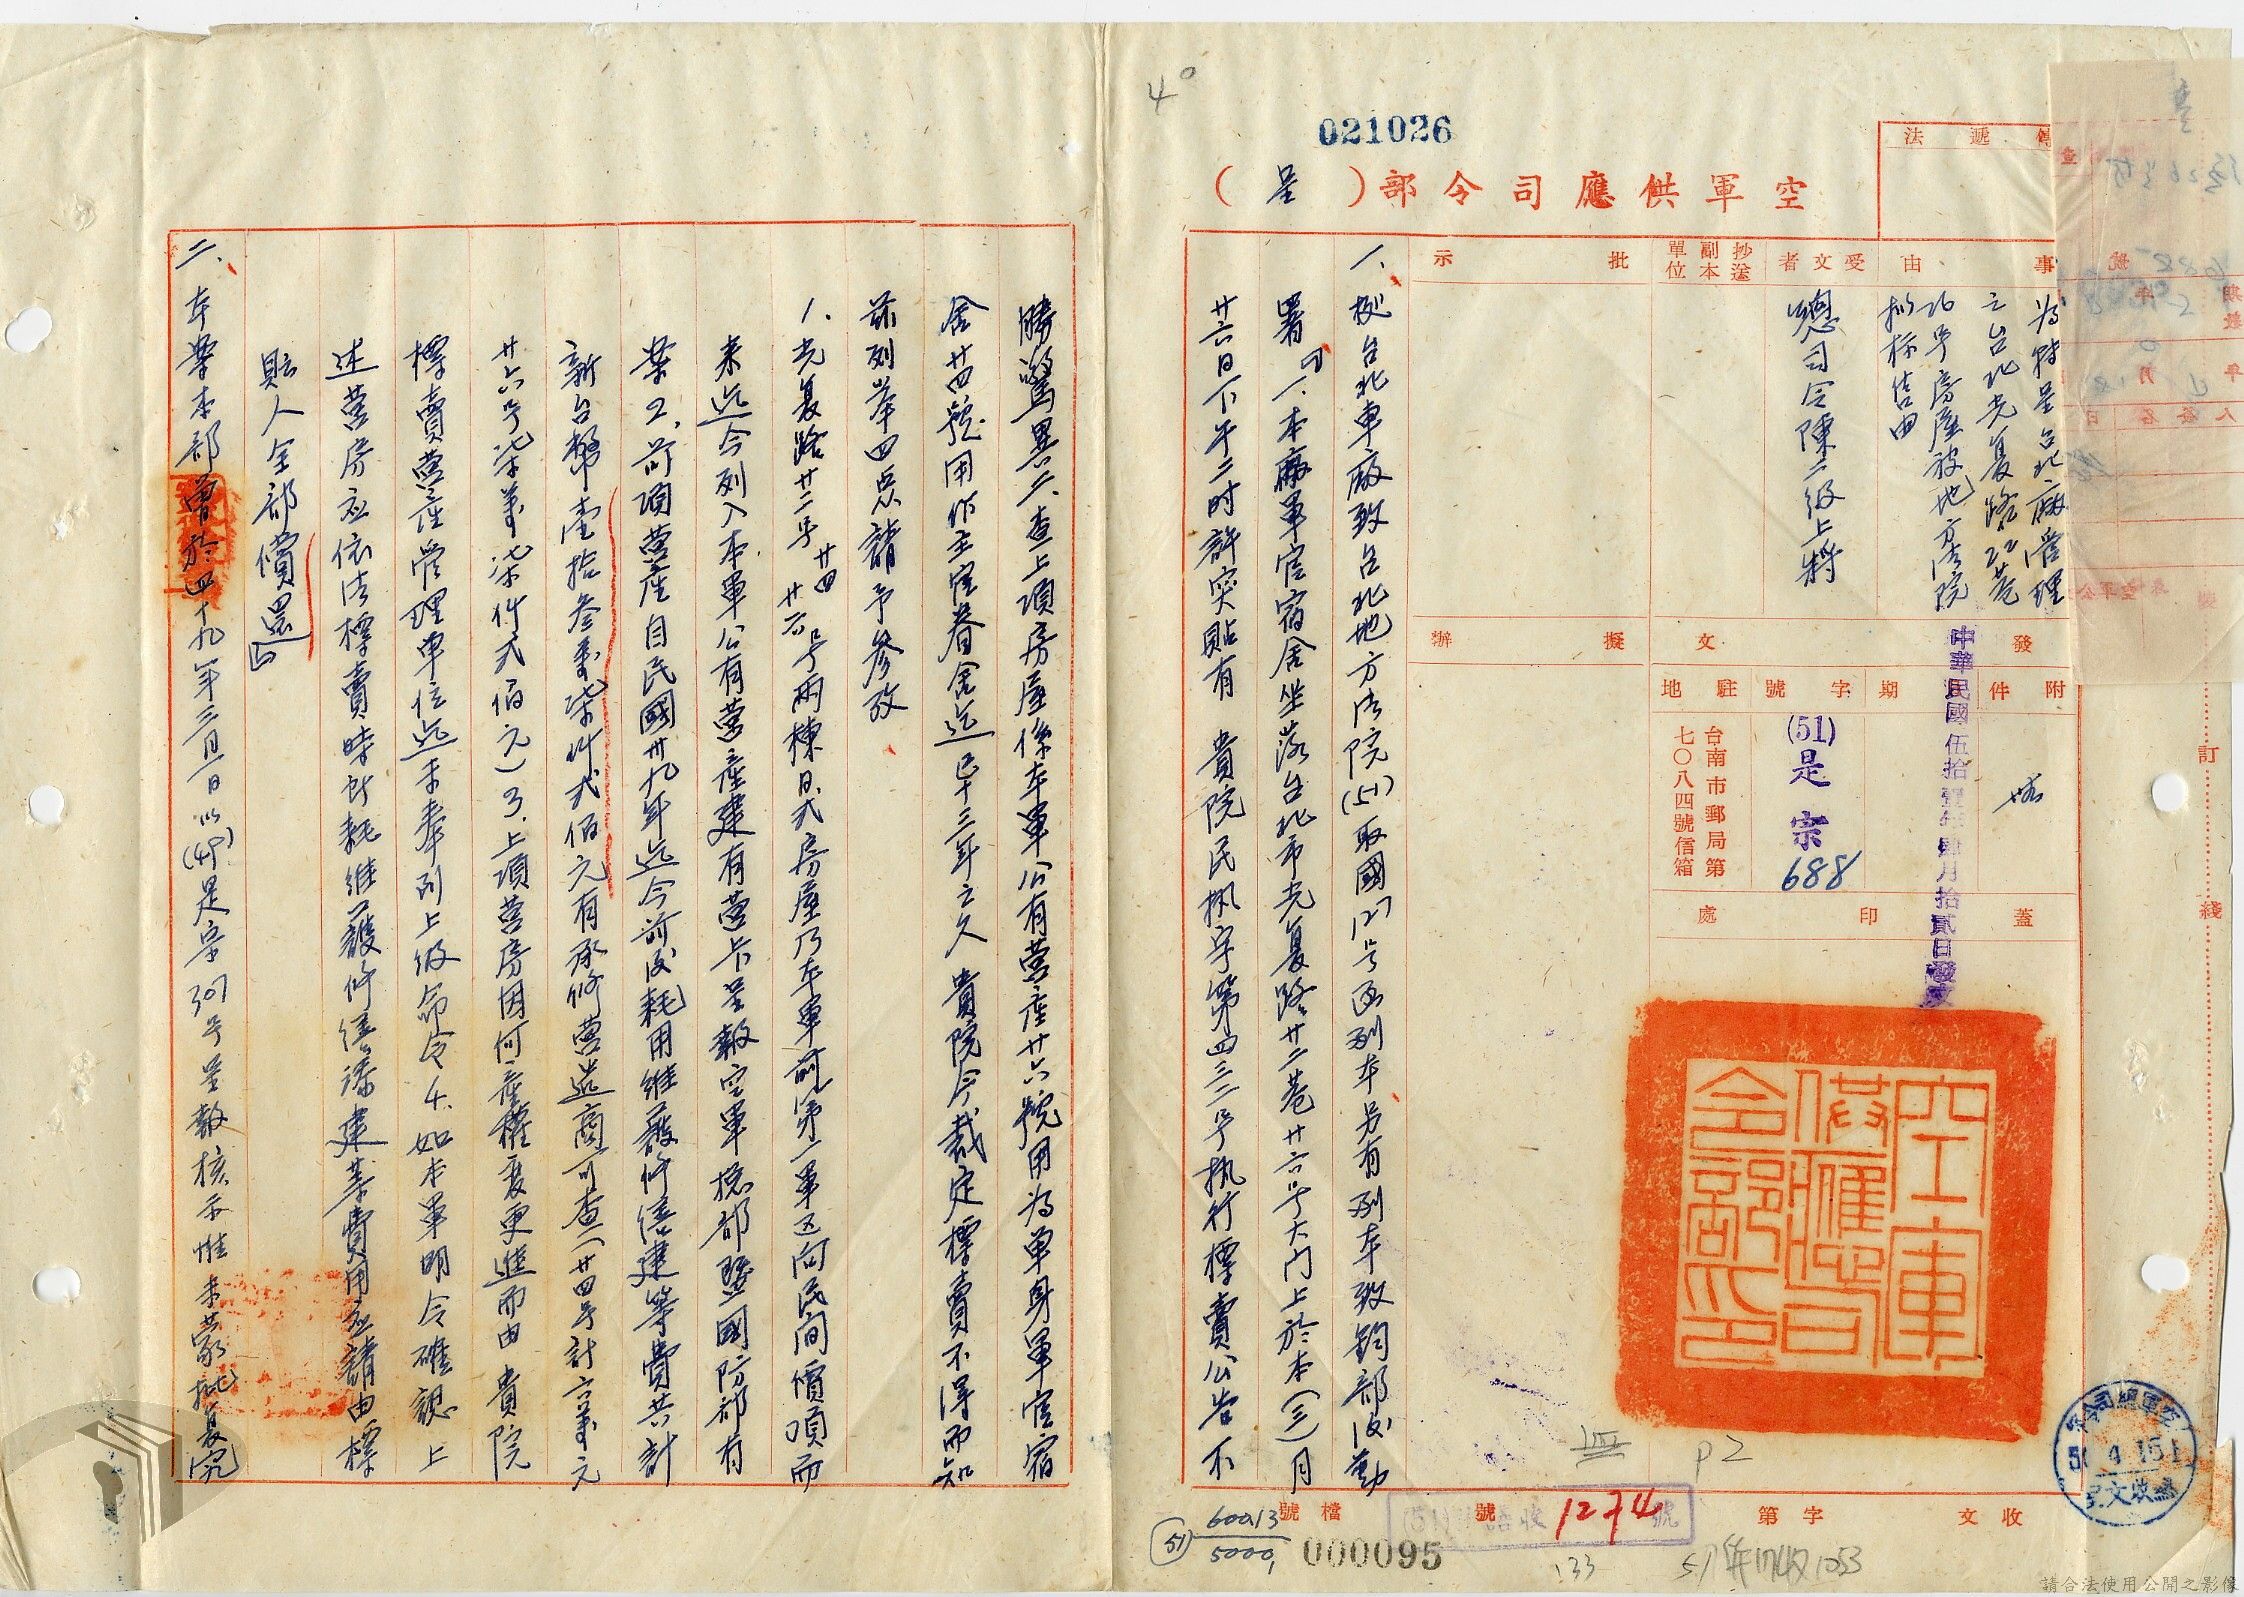 021026
空軍供應司令部（呈）
傳遞法
事由
為轉呈台北廠管理
之台北光复路22巷
26号房產被地方法院
拟标售由
受文者
總司令陳二級上將
抄送副本單位
批示
擬辦
發文
附件
期
字號
駐地
中華民國伍拾壹年肆月拾貳日發文
(51)是宗
688
台南市郵局第
七〇八四號信箱
蓋印處
空軍供應司令部印
一、据台北車廠致台北地方法院(51)取國127号函副本另有副本致鈞部後勤
署『一、本廠軍官宿舍坐落台北市光复路廿二巷廿六号大门上於本(三)月
廿六日下午二时許突貼有 貴院民執字第四三二号執行標賣公告不
勝驚異二、查上項房屋係本軍公有營產廿六號用為單身軍官宿
舍廿四號用作主官眷舍迄已十三年之久 貴院今裁定標賣不得而知
茲列举四点請予參攷
1.光复路廿二号廿四廿六号兩棟日式房屋乃本軍前第二軍区向民间價項而
来迄今列入本軍公有營產建有營卡呈報空軍總部暨國防部有
案2.前項營產自民國卅九年迄今前後耗用維護修繕建等費共計
新台幣壹拾叁萬柒仟弍佰元有承修營造商可查(廿四号計六萬元
廿六号柒萬柒仟弍佰元)3.上項營房因何產權变更進而由 貴院
標賣營產管理單位迄未奉到上级命令4.如本軍明令確認上
述營房应依法標賣時所耗維護修繕添建等費用应請由標
賍人全部償還』
二、本案本部曾於四十九年三月一日以(49)是宗307号呈報核示惟未蒙批复究
收文
字第
1274
號
檔號
(51) 600.13/5000.1
000095
133
51年 收1053
P2
空軍總司令部
51.4.15
總收文
訂
綫
4
請合法使用公開之影像